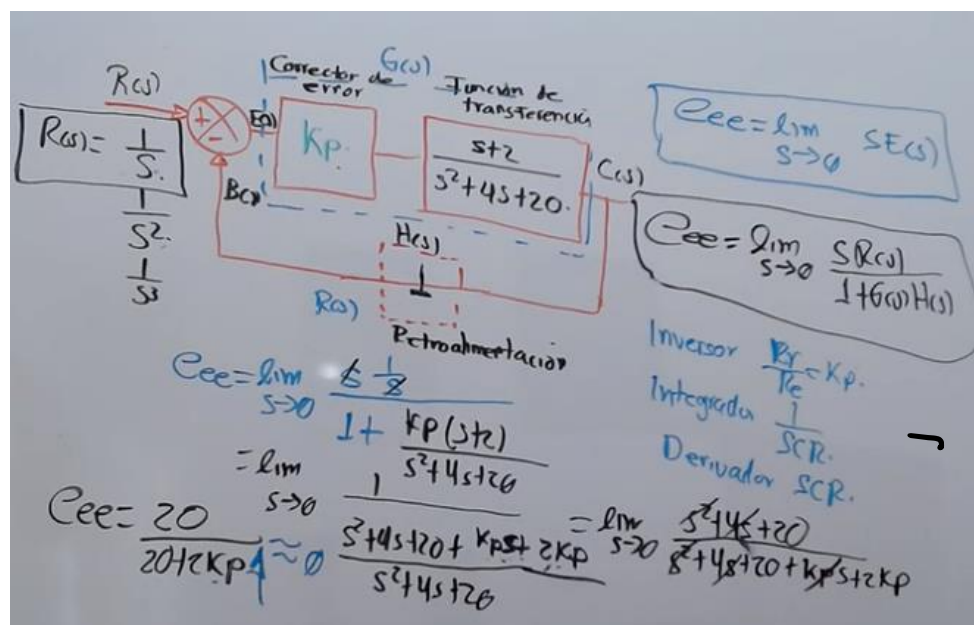 Corrector de error
G(s)
Función de transferencia
R(s)
R(s) = 1/S.
1/S².
1/S³
+
-
E(s)
Kp.
s+2 / s²+4s+20.
C(s)
B(s)
H(s)
1
R(s)
Retroalimentación
eee = lim s→0 SE(s)
eee = lim s→0 SR(s) / 1+G(s)H(s)
Inversor Rf/Re = Kp.
Integrador 1/SCR.
Derivador SCR.
eee = lim s→0 s 1/s / 1 + Kp(s+2) / s²+4s+20
= lim s→0 1 / s²+4s+20 + Kps + 2Kp / s²+4s+20 = lim s→0 s²+4s+20 / s²+4s+20+Kps+2Kp
eee = 20 / 20+2Kp ≈ 0